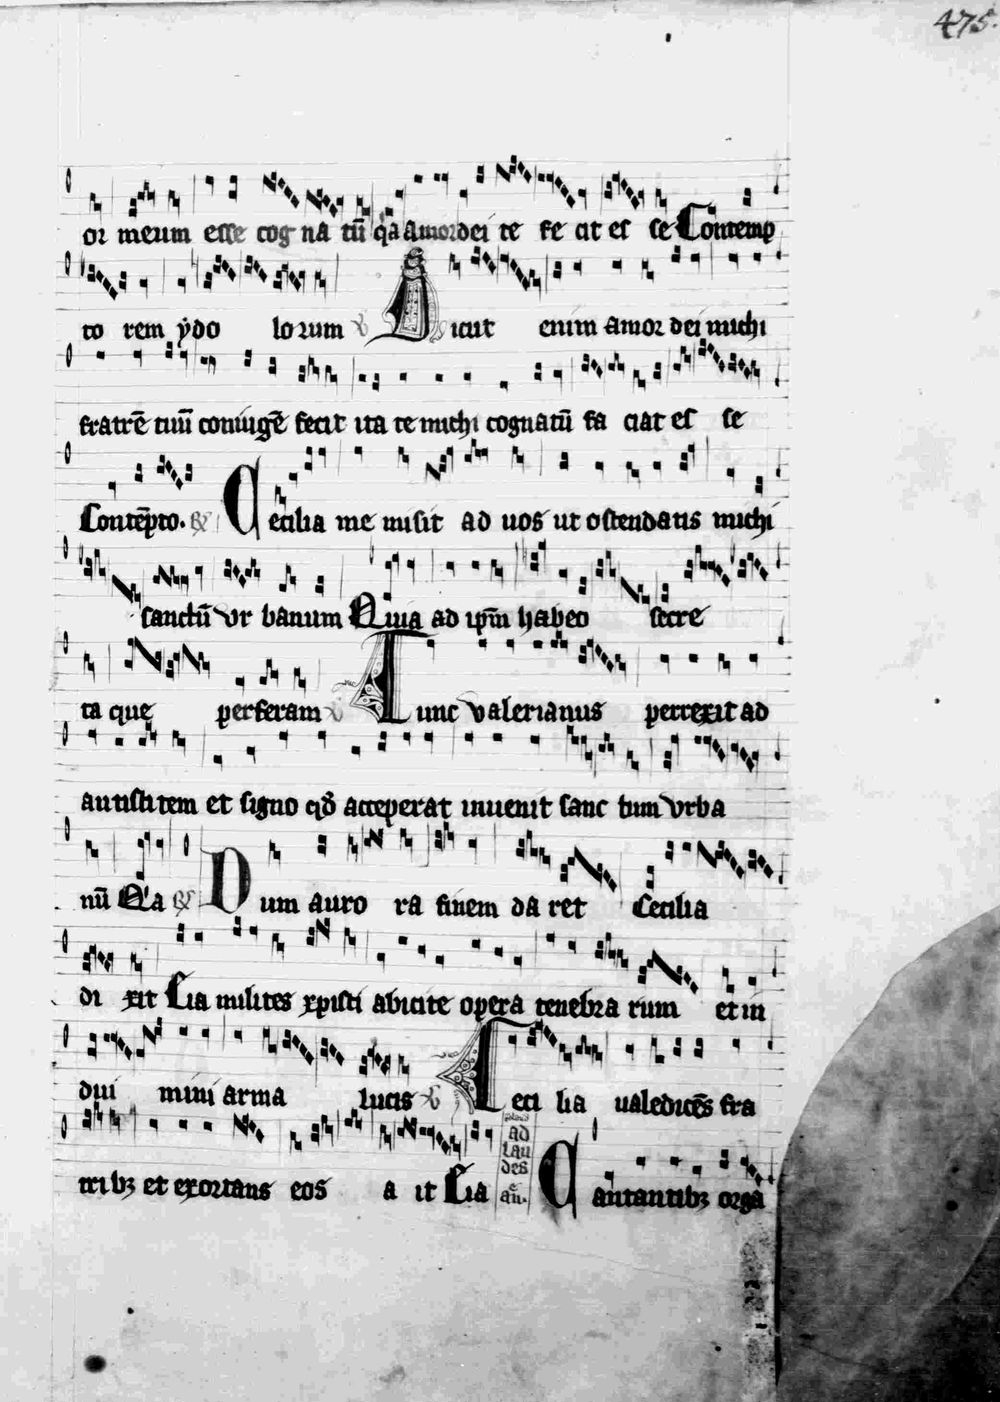 475.
or meum esse cog na tū q̄a amor dei te fe cit es se Contemp
to rem ydo lorum ℣ Sicut enim amor dei michi
fratrē tuū coniugē fecit ita te michi cognatū fa ciat es se
Contēpto. ℟ Cecilia me misit ad uos ut ostendatis michi
sanctū vr banum Quia ad ip̄m habeo secre
ta que perferam ℣ Tunc valerianus perrexit ad
antistitem et signo qd̄ acceperat inuenit sanc tum vrba
nū Q'a ℟ Dum auro ra finem da ret Cecilia
di xit Eia milites xp̄isti abicite opera tenebra rum et in
dui mini arma lucis ℣ Ceci lia ualedicēs fra
tribꝫ et exortans eos a it Eia ad lau des an. Cantantibꝫ orga